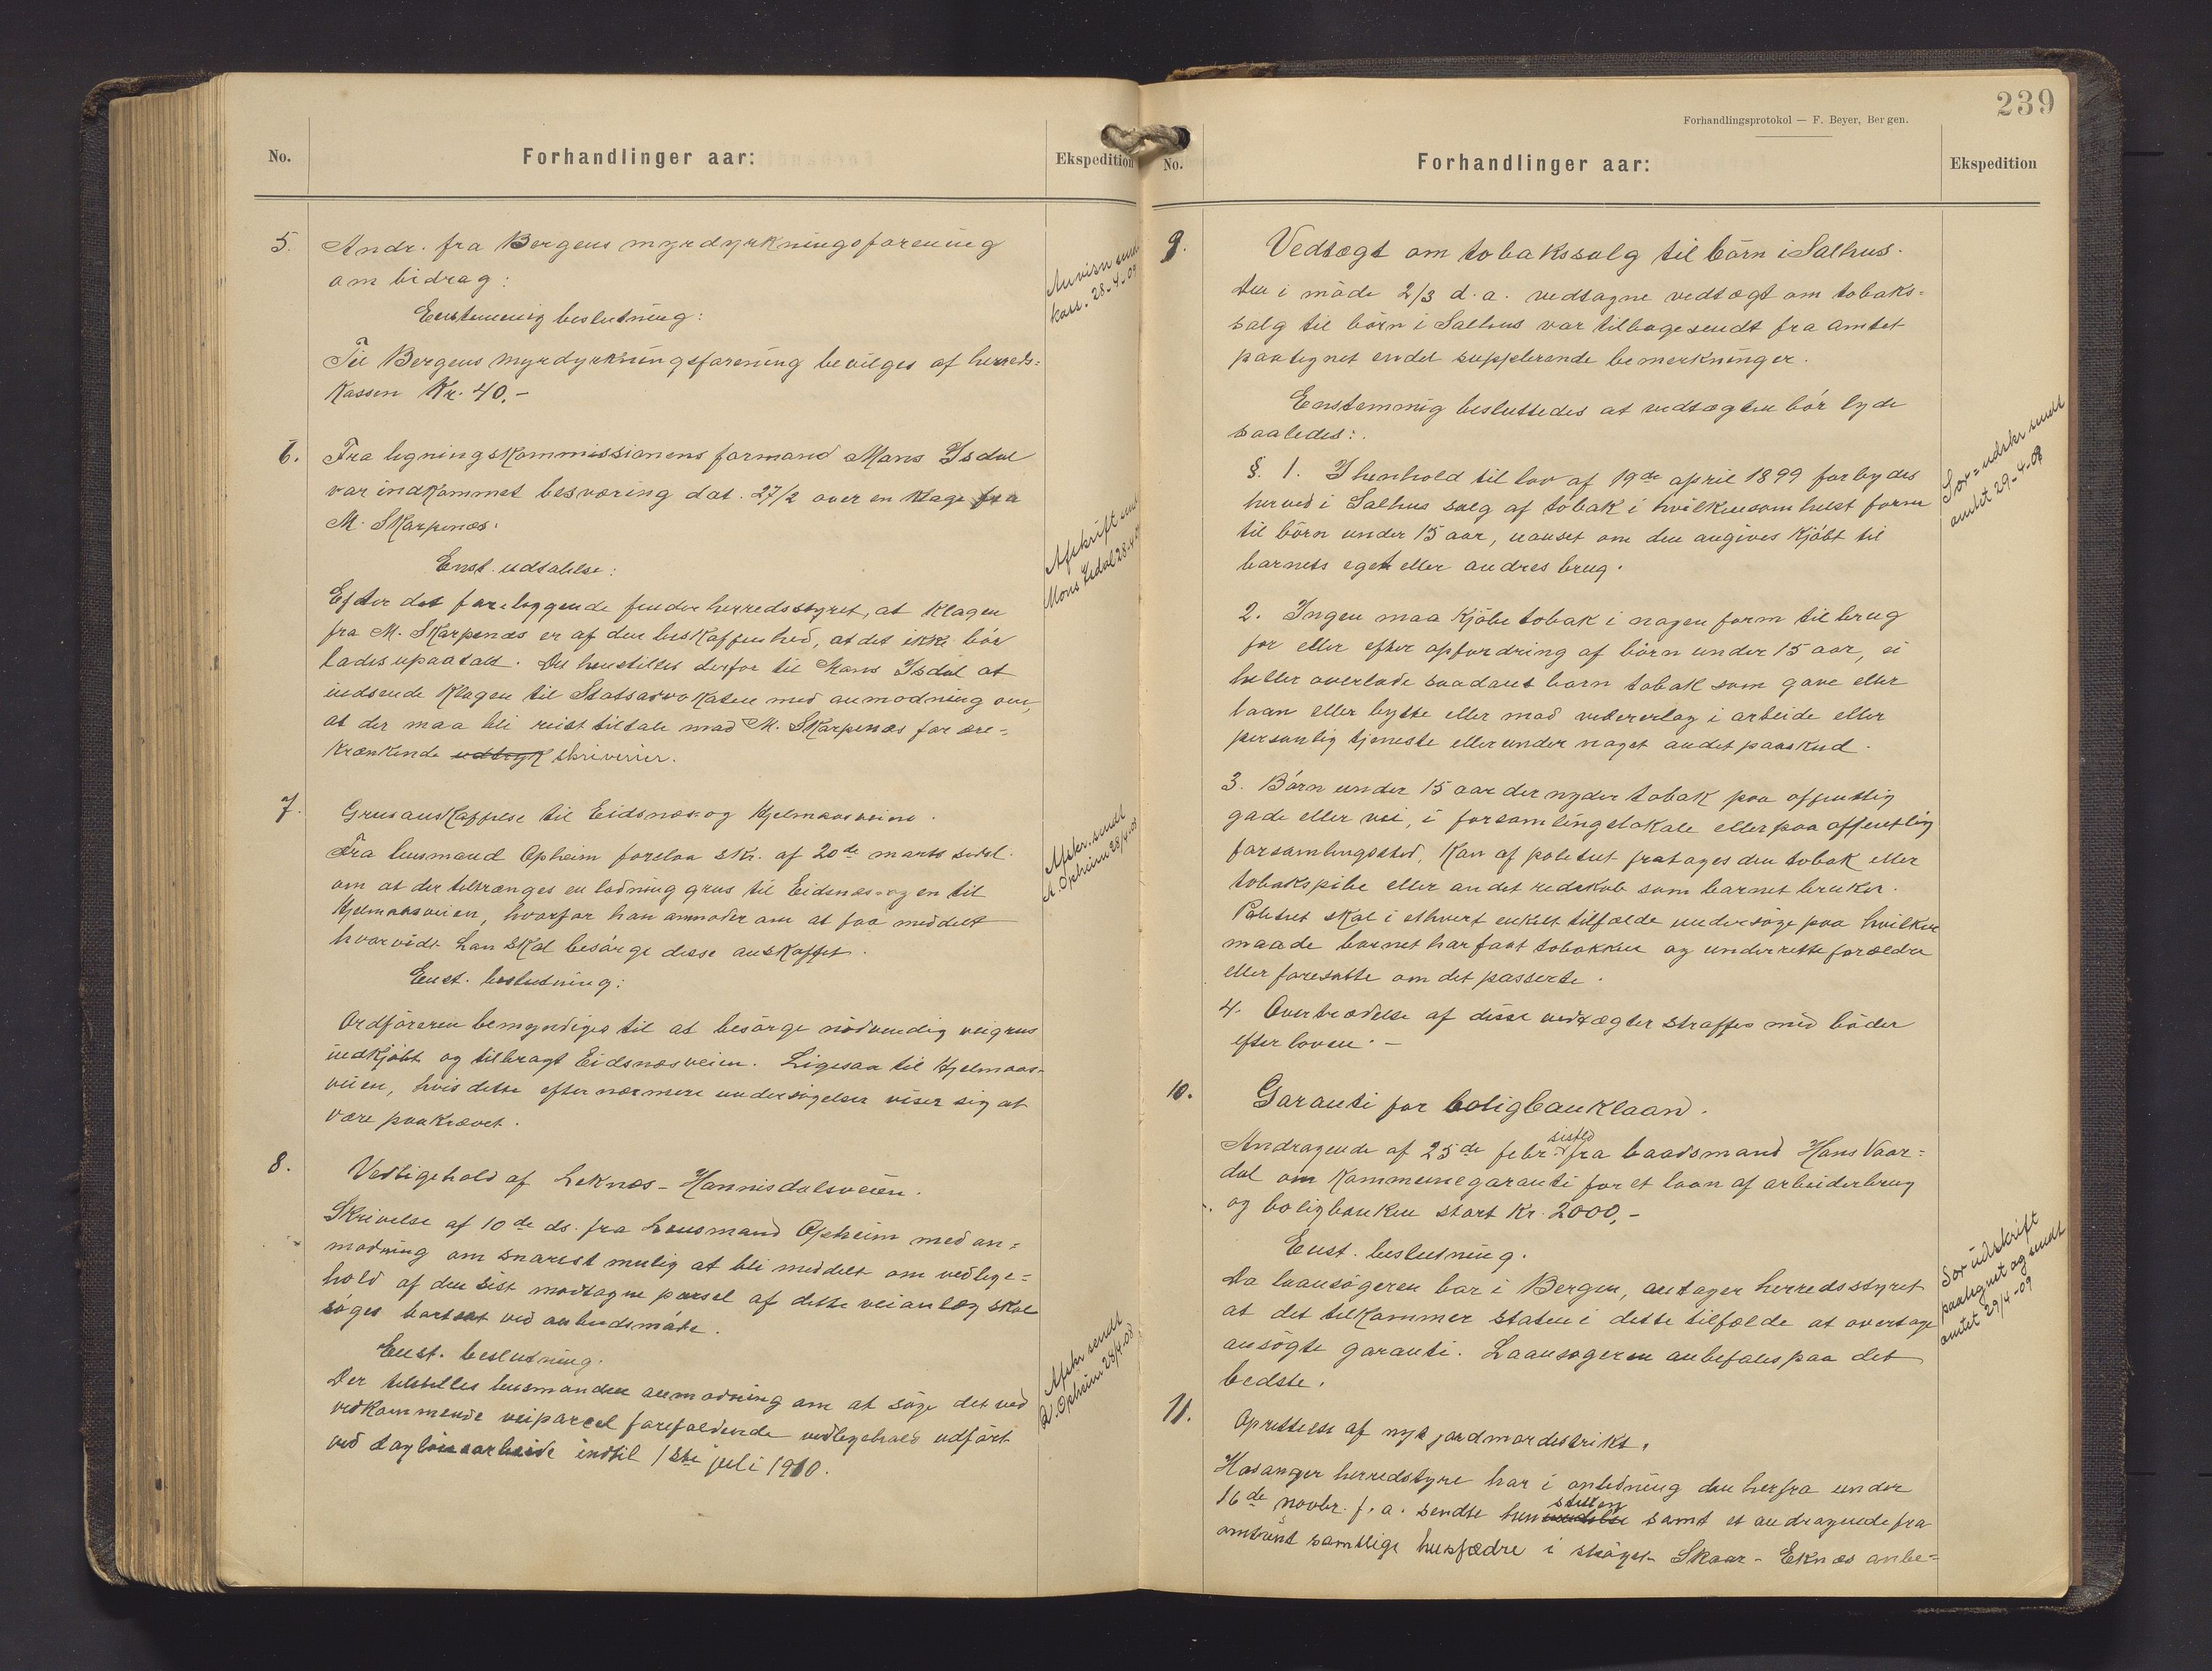 No.
Forhandlinger aar:
Ekspedition
5. Andr. fra Bergens myrdyrkningsforening
om bidrag:
Enstemmig beslutning:
Til Bergens myrdyrkningsforening bevilges af herreds-
kassen Kr. 40.-
Anvisn send
kass. 28-4-09
6. Fra ligningskommissionens formand Mons Isdal
var indkommet besværing dat. 27/2 over en klage fra
M. Skarpenæs:
Enst. udtalelse:
Efter det foreliggende finder herredsstyret, at klagen
fra M. Skarpenæs er af den beskaffenhed, at det ikke bör
lades upaatalt. Det henstilles derfor til Mons Isdal at
indsende klagen til Statsadvokaten med anmodning om,
at der maa bli reist tiltale mod M. Skarpenæs for ære-
krænkende udtryk skriverier.
Afskrift send
Mons Isdal 28-4-09
7. Grusanskaffelse til Eidsnæs- og Hjelmaasveiene.
Fra lensmand Opheim forelaa skr. af 20de marts sidstl.
om at der tiltrænges en ladning grus til Eidsnæs- og en til
Hjelmaasveien, hvorfor han anmoder om at faa meddelt
hvorvidt han skal besörge disse anskaffet.
Enst. beslutning:
Ordföreren bemyndiges til at besörge nödvendig veigrus
indkjöbt og tilbragt Eidsnæsveien. Ligesaa til Hjelmaas-
veien, hvis dette efter nærmere undersögelser viser sig at
være paakrævet.
Afskr. sendt
A. Opheim 28/4-09
8. Vedligehold af Leknæs-Hannisdalsveien.
Skrivelse af 10de ds. fra Lensmand Opheim med an-
modning om snarest mulig at bli meddelt om vedlige-
hold af den sist modtagne parsel af dette veianlæg skal
söges bortsat ved anbudsmåte.
Enst. beslutning.
Der tilstilles lensmanden anmodning om at söge det ved
vedkommende veiparcel forefaldende vedligehold udfört
ved daglönsarbeide indtil 1ste juli 1910.
Afskr sendt
A. Opheim 28/4-09
239
Forhandlingsprotokol — F. Beyer, Bergen.
No.
Forhandlinger aar:
Ekspedition
9. Vedtægt om tobakssalg til börn i Salhus.
Den i möde 2/3 d.a. vedtagne vedtægt om tobaks-
salg til börn i Salhus var tilbagesendt fra amtet
paategnet endel supplerende bemerkninger.
Enstemmig besluttedes at vedtægten bör lyde
saaledes:
§. 1. I henhold til lov af 19de april 1899 forbydes
herved i Salhus salg af tobak i hvilkensomhelst form
til börn under 15 aar, uanset om den angives kjöbt til
barnets eget eller andres brug.
2. Ingen maa kjöbe tobak i nogen form til brug
for eller efter opfordring af börn under 15 aar, ei
heller overlade saadant barn tobak som gave eller
laan eller bytte eller mod vederlag i arbeide eller
personlig tjeneste eller under noget andet paaskud.
3. Börn under 15 aar der nyder tobak paa offentlig
gade eller vei, i forsamlingslokale eller paa offentlig
forsamlingssted, kan af politiet fratages den tobak eller
tobakspibe eller andet redskab som barnet bruker.
Politiet skal i ethvert enkelt tilfælde undersöge paa hvilken
maade barnet har faat tobakken og underrette forældre
eller foresatte om det passerte.
4. Overtrædelse af disse vedtægter straffes med böder
efter loven.-
Sær-udskr sendt
amtet 29-4-09
10. Garanti for boligbanklaan.
Andragende af 25de febr. sistl fra baadsmand Hans Vaar-
dal om Kommunegaranti for et laan af arbeiderbrug
og boligbanken stort Kr. 2000,-
Enst. beslutning.
Da laansögeren bor i Bergen, antager herredsstyret
at det tilkommer staten i dette tilfælde at overtage
ansögte garanti. Laansögeren anbefales paa det
bedste.
Sær udskrift
paategnet og sendt
amtet 29/4-09
11. Oprettelse af nyt jordmordistrikt.
Hosanger herredstyre har i anledning den herfra under
16de novbr. f.a. sendte henvendelse stillen samt et andragende fra
omtrent samtlige husfædre i ströget Skaar-Eknæs anbe-